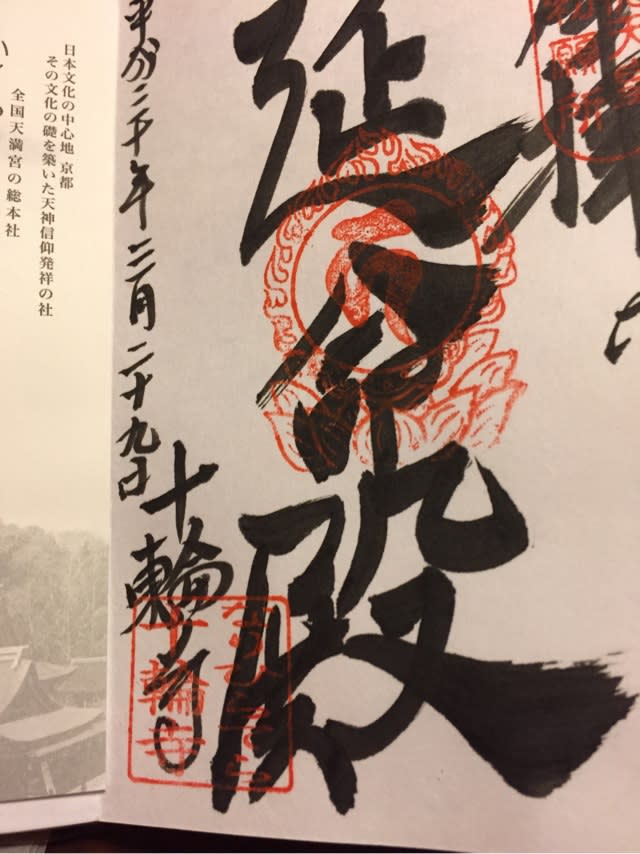 願所
延命殿
平成三十年三月二十九日
十輪寺
なりひらてら
十輪寺
日本文化の中心地 京都
その文化の礎を築いた天神信仰発祥の社
全国天満宮の総本社